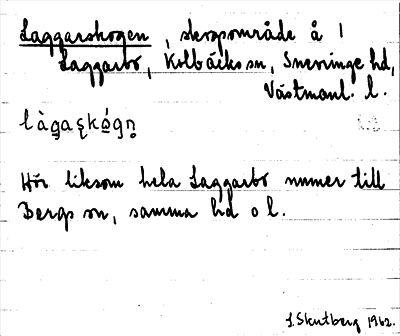 Laggarskogen, skogsområde å 1
Laggarbo, Kolbäcks sn, Snevringe hd,
Västmanl. l.
làgaskógn̥
Hör liksom hela Laggarbo numer till
Bergs sn, samma hd o l.
I. Skutberg 1962.